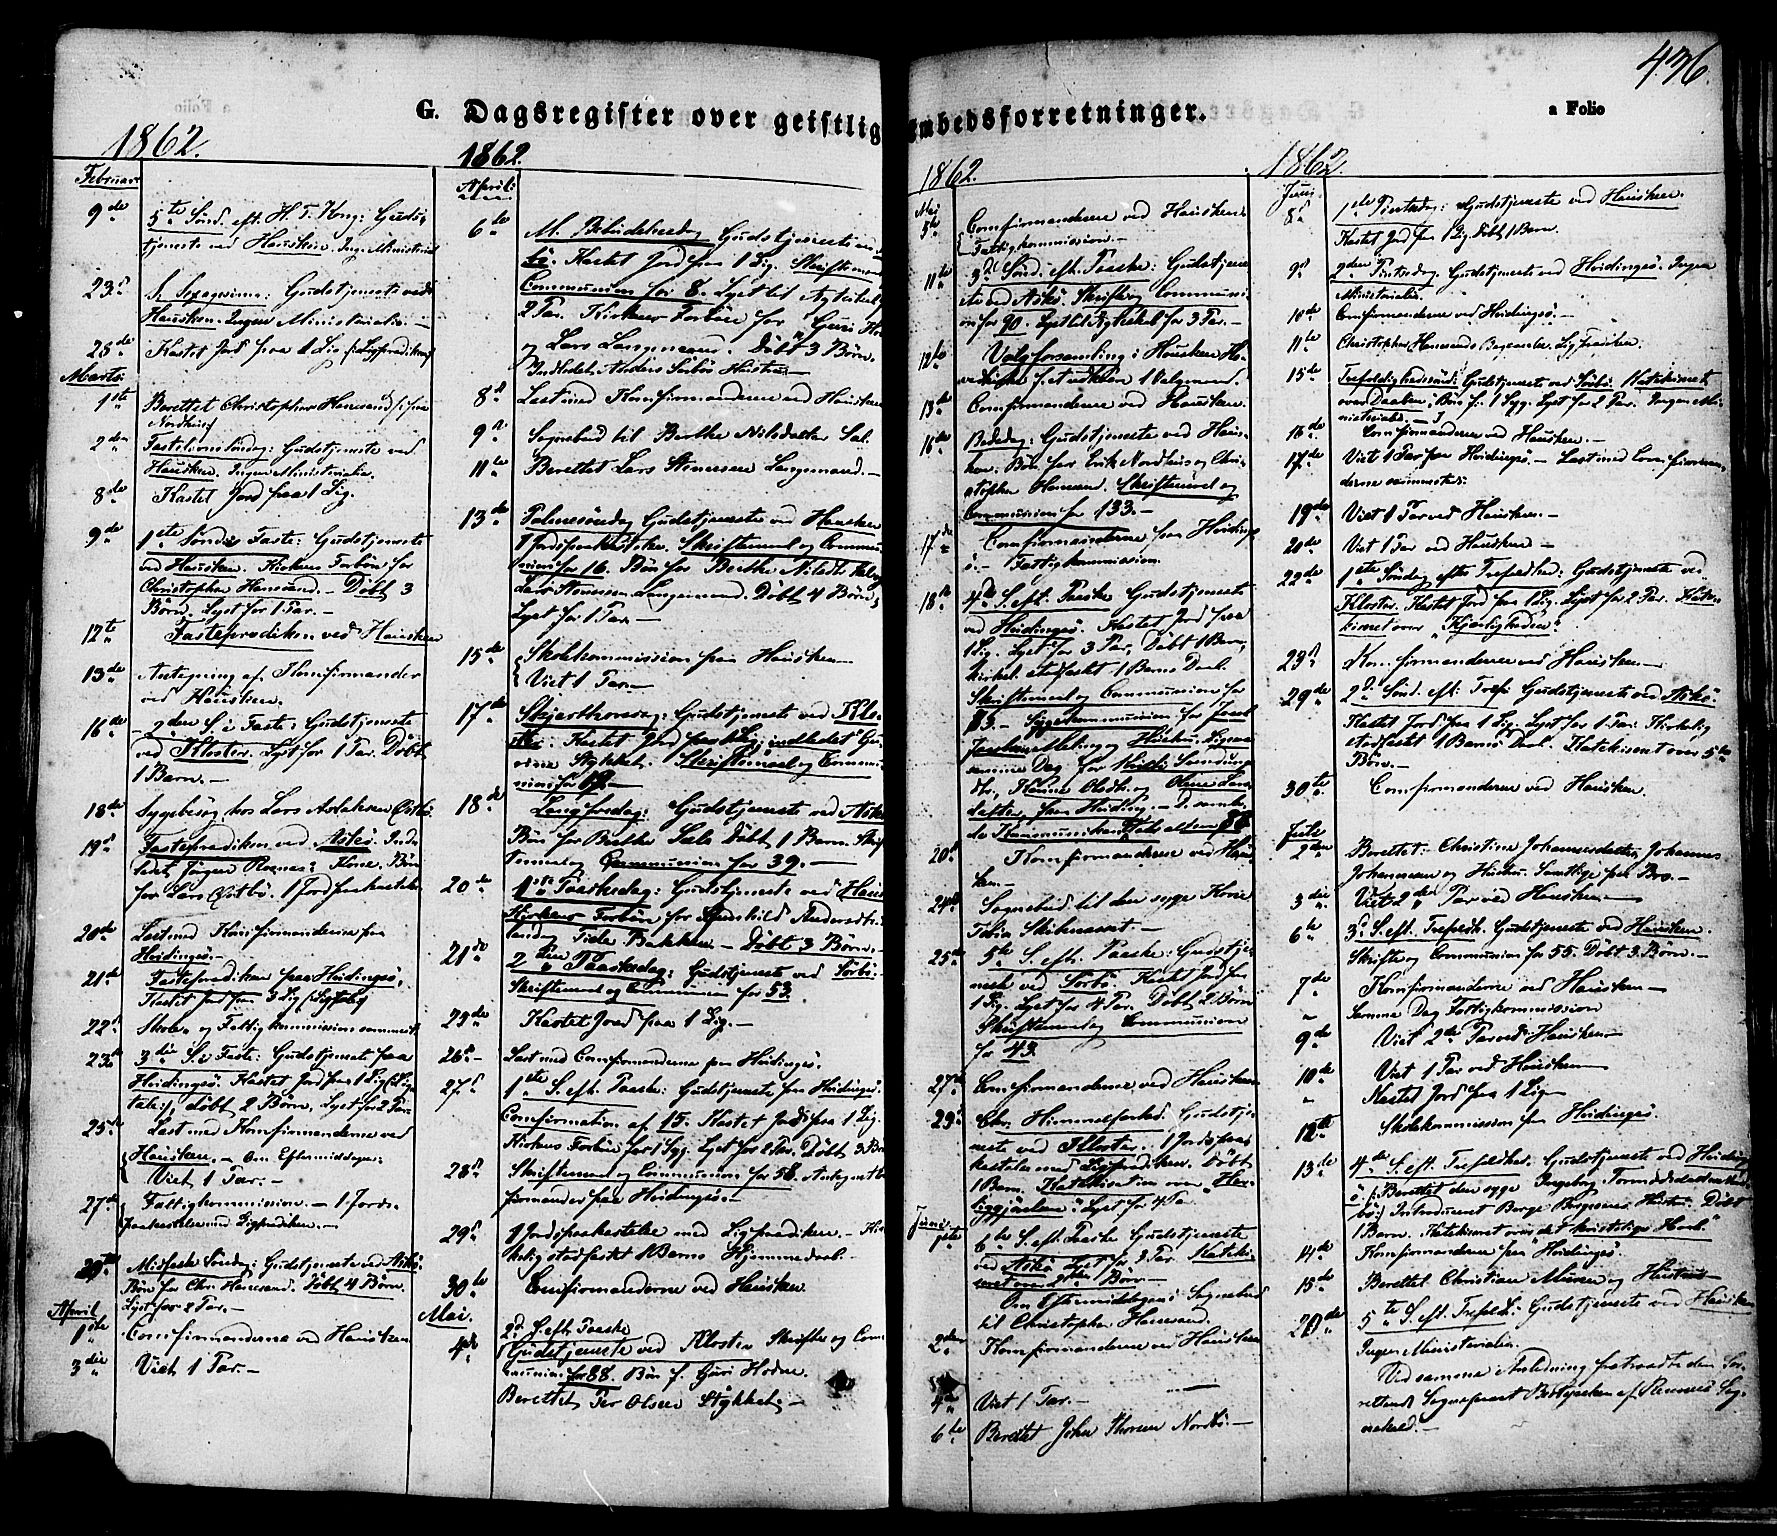 436.
G. Dagsregister over geistlig
Embedsforretninger.
a Folio
1862.
Februar
9de 5te Sönd. eft. H. T. Kong: Guds-
tjeneste ved Hausken. Ingen Ministerial
23d S. Sexagesima: Gudstjeneste ved
Hausken. Ingen Ministerialia.—
25de Kastet Jord paa 1 Lig
Marts:
1ste Berettet Christopher Hanasand
2den Fastelavnssöndag: Gudstjeneste ved
Hausken. Ingen Ministerialia.
8de Kastet Jord paa 1 Lig.
9de 1ste Sönd i Faste: Gudstjeneste
ved Hausken. Kirkens Forbön for
Christopher Hanasand.— Döbt 3
Börn. Lyst for 1 Par.—
12te Fasteprædiken ved Hausken
13de Antegning af Konfirmander
ved Hausken.
16de 2den S. i Faste: Gudstjeneste
ved Kloster. Lyst for 1 Par. Döbt
1 Barn.—
18de Sygebesög hos Lars Aslaksen
19d Fasteprædiken ved Askö. Ind-
ledet Jörgen Kone. Bön
for Lars 1 Jordpaakastelse
20de Læst med Konfirmanderne paa
Hvidingsö.—
21de Fasteprædiken paa Hvidingsö.
Kastet Jord paa 3 Lig
22d Skole- og Fattigkommission sammest
23de 3die S. i Faste: Gudstjeneste paa
Hvidingsö. Kastet Jord paa 1 Lig
tale:/, döbt 2 Börn, Lyst for 2 Par
25de Læst med Konfirmanderne ved
Hausken.— Om Eftermiddagen:
Viet 1 Par.—
27de Fattigkommission.— 1 Jords-
paakastelse med Ligprædiken.—
Midfaste Söndag: Gudstjeneste ved Askö.
Bön for Chr. Hanasand. Döbt 4 Börn.
Lyst for 2 Par.—
April
1ste Confirmanderne ved Hausken
3die Viet 1 Par.—
1862.
April:
6te M. Bebudelsesdag Gudstjeneste ved
Kastet Jord paa 1 Lig. Skriftemaal
Communion for 8. Lyst til Ægteskab
2 Par. Kirkens Forbön for Guri
og Lars Langmand. Döbt 3 Börn.
Indledet Anders Hustru.—
8d Læst med Konfirmanderne ved Hausken
9d Sognebud til Berthe Nilsdatter
11te Berettet Lars Simensen Langemand.—
13de Palmesöndag Gudstjeneste ved Hausken
1 Jordspaakastelse. Skriftemaal og Commun-
ion for 16. Bön for Berthe Nilsdtr.
Lars Simensen Langemand. Döbt 4 Börn,
Lyst for 1 Par.—
15de Skolekommission paa Hausken—
Viet 1 Par.—
17de Skjærthorsdag: Gudstjeneste ved Klo-
ster. Kastet Jord paa 1 Lig, indledet Gu-
Stykket. Skriftemaal og Commu-
nion for 19.—
18de Langfredag: Gudstjeneste ved Askö
Bön for Berthe Döbt 1 Barn. Skrif-
temaal og Communion for 39.—
20de 1ste Paaskedag: Gudstjeneste ved Hausken
Kirkens Forbön for Andersdtr.
Döbt 3 Börn.—
21de 2den Paaskedag: Gudstjeneste ved Sörbö.
Skriftemaal og Communion for 53.
23de Kastet Jord paa 1 Lig.—
26d— Læst med Confirmanderne paa Hvidingsö.
27d 1ste S. eft. Paaske: Gudstjeneste paa Hvidingsö.
Confirmation af 15. Kastet Jord paa 1 Lig.
Kirkens Forbön for 1 Syg. Lyst for 2 Par. Döbt 3 Börn
28d Skriftemaal og Communion for 58. Antegnet
firmander paa Hvidingsö.—
29d 1 Jordspaakastelse med Ligprædiken.— Kir-
kelig stadfæstet 1 Barns Hjemmedaab.—
30te Confirmanderne ved Hausken
Mai.
4de 2d S. eft. Paaske
Gudstjeneste ved Kloster Skrifte og Com-
munion for 88. Bön f. Guri Hodne.
Berettet Per Olsen Stykket.—
1862.
Mai
5te Comfirmanderne ved Hausken.
Fattigkommission.—
11te 3d Sönd. eft. Paaske: Gudstjene-
ste ved Askö. Skrifte og Communi-
on for 90. Lyst til Ægteskab for 3 Par.—
12te Valgforsamling i Hausken Ho-
vedkirke f. at udkaare 1 Valgmand.
13de Comfirmanderne ved Hausken.
16de Bededag: Gudstjeneste ved Haus-
ken. Bön for Erik Nordhus og Chri-
stopher Hanasand. Skriftemaal og
Communion for 133.—
17de Comfirmanderne paa Hviding-
sö.— Fattigkommission.
18de 4de S. eft. Paaske Gudstjeneste
ved Hvidingsö. Kastet Jord paa
1 Lig. Lyst for 3 Par, Döbt 1 Barn,
kirkel. stadfæstet 1 Barns Daab.
Skriftemaal og Communion for
83.— Sygekommunion for Jacob
og Hustru. Ligesaa
samme Dag for
og Oline Lars-
datter, paa Hvidings.— D. samle-
de Kommunikanttal altsaa 88.
20d Konfirmanderne ved Haus-
ken.—
24de Sognebud til den syge Kone
25de 5te S. eft. Paaske: Gudstje-
neste ved Sörbö. Kastet Jord paa
1 Lig. Lyst for 4 Par. Döbt 2 Börn
Skriftemaal og Communion
for 43.
27de Comfirmanderne ved Hausken
29d Chr. Himmelfartsd. Gudstje-
neste ved Kloster. 1 Jordspaa-
kastelse med Ligprædiken. Döbt
1 Barn. Katekisation over "Hel-
liggjörelsen". Lyst for 4 Par
Juni
1ste 6te S. eft. Paaske Gudstjeneste
ved Askö Lyst for 3 Par. Kateki-
seret over Bön.—
Om Eftermiddagen i Sognebud
til Christopher Hanasand.
2den Konfirmanderne ved Hausken
4de Viet 1 Par.—
6te Berettet John Thorsen Nordbö—
1862.
Juni.
8d 1ste Pintsedag: Gudstjeneste ved Hausken.
Kastet Jord paa 1 Lig. Döbt 1 Barn.
9d 2den Pintsedag. Gudstjeneste ved Hvidingsö. Ingen
Ministerialia.
10de Comfirmanderne ved Hvidingsö.—
11te Christopher Hanasands Begravelse. Ligprædiken.
15de Trefoldighedssönd: Gudstjeneste ved Sörbö. Katekiseret
over Daaben. Bön f. 1 Syg. Lyst for 2 Par. Ingen Mi-
nisterialia.—
16de Comfirmanderne ved Hausken.—
17de Viet 1 Par paa Hvidingsö.— Læst med Comfirman-
derne sammesteds.
19de Viet 1 Par ved Hausken.—
20de Viet 1 Par ved Hausken—
22de 1ste Söndag efter Trefoldhed: Gudstjeneste ved
Kloster. Kastet Jord paa 1 Lig. Lyst for 2 Par. Kate-
kiseret over "Kjærligheden".
23d Konfirmanderne ved Hausken—
29de 2d Sönd. eft. Tref. Gudstjeneste ved Askö.
Kastet Jord paa 1 Lig. Lyst for 1 Par. Kirkelig
stadfæstet 1 Barns Daab. Katekiseret over 5te
Bön.—
30te Comfirmanderne ved Hausken.
Jule
2den Berettet: Christine Johannesdatter, Johannes
Johannesen og Hustru. Samtlige paa Bro.—
3die Viet 2de Par ved Hausken—
6te 3d S. eft. Trefoldh. Gudstjeneste ved Hausken.
Skrifte og Communion for 55. Döbt 3 Börn.—
7de Konfirmanderne ved Hausken—
" Samme Dag Fattigkommission
9de Viet 2de Par ved Hausken—
10de Viet 1 Par ved Hausken
" Kastet Jord paa 1 Lig—
12te Skolekommission paa Hvidingsö.
13de 4de S. eft. Trefoldhed. Gudstjeneste ved Hviding-
sö /: Berettet den syge Ingeborg
bö:/ Introduceret Börge Börgesens Hustru. Döbt
1 Barn. Katekiseret over det "kristelige Haab."
14de Konfirmanderne paa Hvidingsö.
15de Berettet Christian og Hustru—
20de 5te S. eft. Trefold: Gudstjeneste ved Hausken
Ingen Ministerialia.
Ved samme Anledning fratraadte den For-
rettende Sognepræst Bestyrelsen af Rennesö Sog-
nekald.—